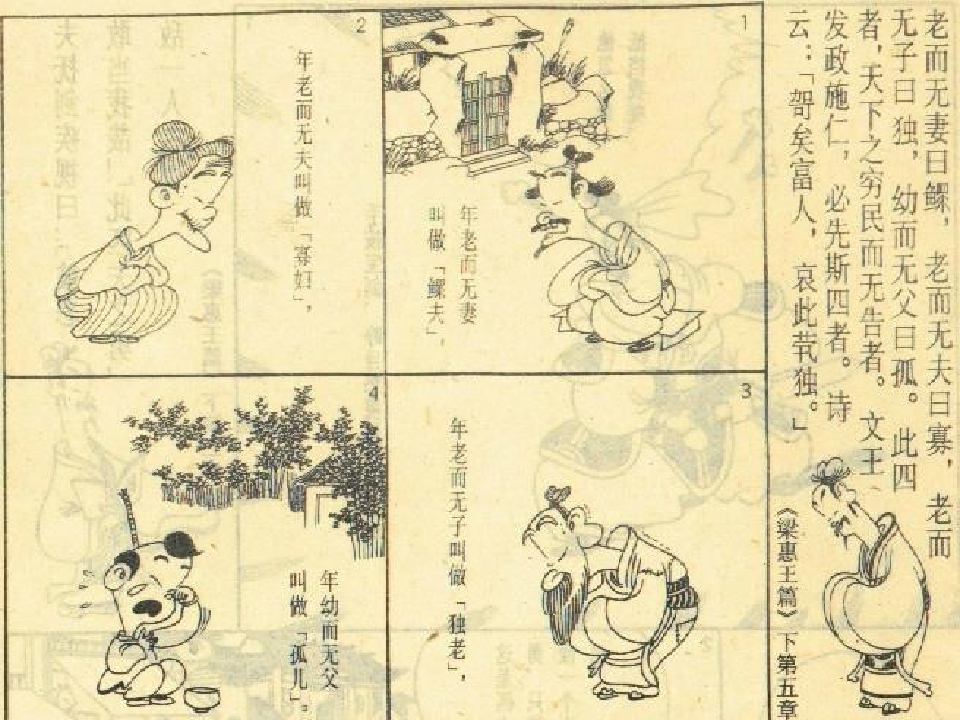 老而无妻曰鳏，老而无夫曰寡，老而
无子曰独，幼而无父曰孤。此四
者，天下之穷民而无告者。文王
发政施仁，必先斯四者。诗
云：「哿矣富人，哀此茕独。」
《梁惠王篇》下第五章
1
年老而无妻
叫做「鳏夫」，
2
年老而无夫叫做「寡妇」，
3
年老而无子叫做「独老」，
4
年幼而无父
叫做「孤儿」。